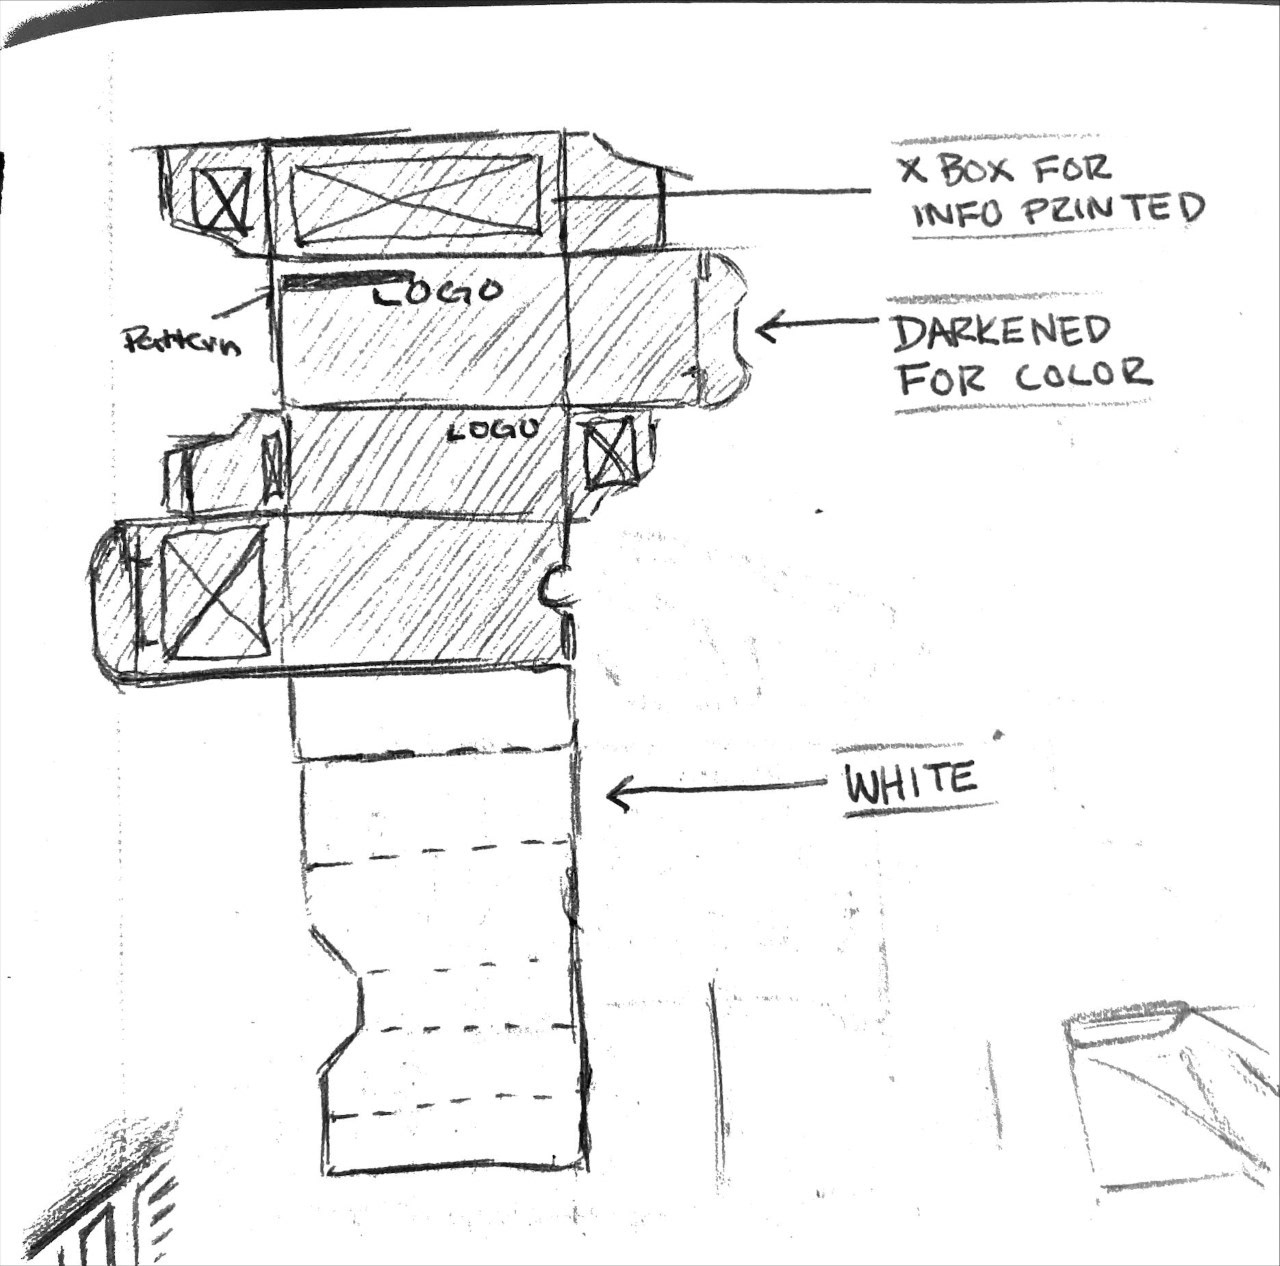 X BOX FOR
INFO PRINTED
LOGO
Pattern
DARKENED
FOR COLOR
LOGO
WHITE